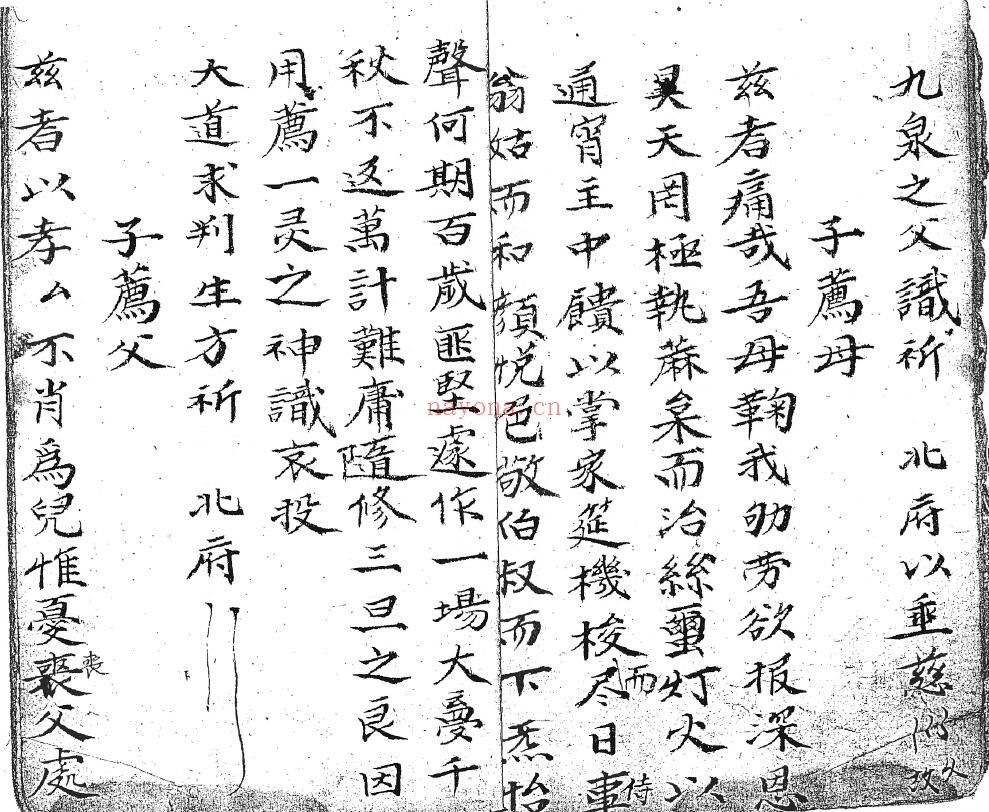 九泉之父識祈 北府以垂慈
子薦母
兹者痛哉吾母鞠我劬劳欲报深恩
昊天罔極執蔴枲而治絲蠒灯火以
通宵主中饋以掌家筵機梭尽而日事侍
翁姑而和顔悦色敬伯叔而下炁怡
聲何期百歲匪堅遽作一場大夢千
秋不返萬計難庸修三旦之良因
用薦一灵之神識哀投
大道求判生方祈 北府
子薦父
兹者以孝厶不肖爲兒惟憂喪父處
nayona.cn